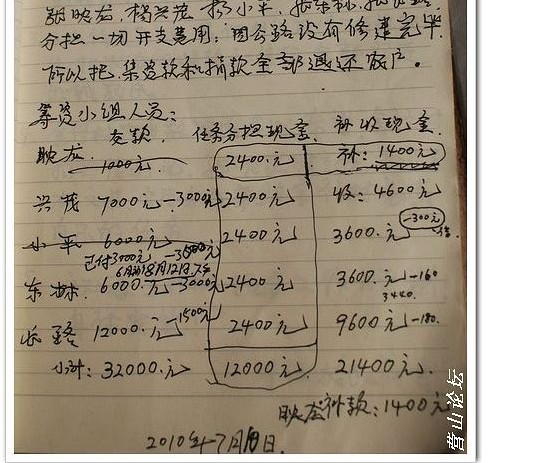 分担一切开支费用。因公路没有修建完毕
所以把集资款和捐款全部退还农户。
筹资小组人员:
支款. 任务分担现金. 补收现金.
映龙 1000元 2400.元 补:1400元
兴茂 7000元 -300元 2400元 收:4600元
小平 6000元 2400元 3600.元 -300元
已付3000元
东林. 6000.元 -3000元 2400元 3600.元 -160
3440.
长路 12000.元 -1500元 2400元 9600元 -180.
小计:32000.元 12000元 21400元.
映龙补款:1400元
2010年7月 日.
营山论坛